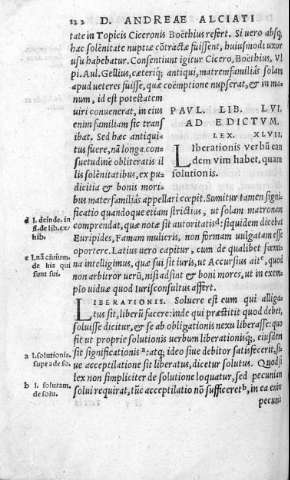 122 D. ANDREAE ALCIATI
tate in Topicis Ciceronis Boëthius refert. Si uero absq;
hac solēnitate nuptiæ cōtractæ fuissent, huiusmodi uxor
usu habebatur. Consentiunt igitur Cicero, Boëthius, Vl
pi. Aul. Gellius, cæteriq; antiqui, matremfamiliás solam
apud ueteres fuisse, quæ coëmptione nupserat, & in ma
num, id est potestatem
uiri conuenerat, in eius
enim familiam sic transi
ibat. Sed hac antiquita
tus fuere, nā longa con
suetudine obliteratis il
lis solēnitatibus, ex pu
dicitia & bonis mori
PAVL. LIB. LVI.
AD EDICTVM.
LEX. XLVII.
Liberationis uerbū ean
dem vim habet, quam
solutionis.
bus materfamiliâs appellari cœpit. Sumitur tamen signi
ficatio quandoque etiam strictius, ut solam matronam
comprendat, quæ notæ sit autoritatis: siquidem dicebat
Euripides, Famam mulieris, non formam uulgatam esse
oportere. Latius uero capitur, cum de qualibet fœmi
na intelligimus, quæ sui sit iuris, ut Accursius ait, quod
non arbitror uerū, nisi adsiat & boni mores, ut in exem
plo uiduæ quod Iurisconsultus affert.
d l. deinde. in
ff. de lib. ex-
hib.
sunt sui.
LIBERATIONIS. Soluere est eum qui alliga
tus sit, liberū facere: inde qui præstitit quod debet,
soluisse dicitur, & se ab obligationis nexu liberasse: quo
fit ut proprie solutionis uerbum liberationiq́; eiusdem
sit significationis: atq; ideo siue debitor satisfecerit, si-
ue acceptilatione sit liberatus, dicetur solutus. Quòd si
lex non simpliciter de solutione loquatur, sed pecuniam
solui requirat, tūc acceptilatio nō sufficeret, in ea enim
pecuni
a l. solutionis.
supra de so.
b l. solutam.
de solu.